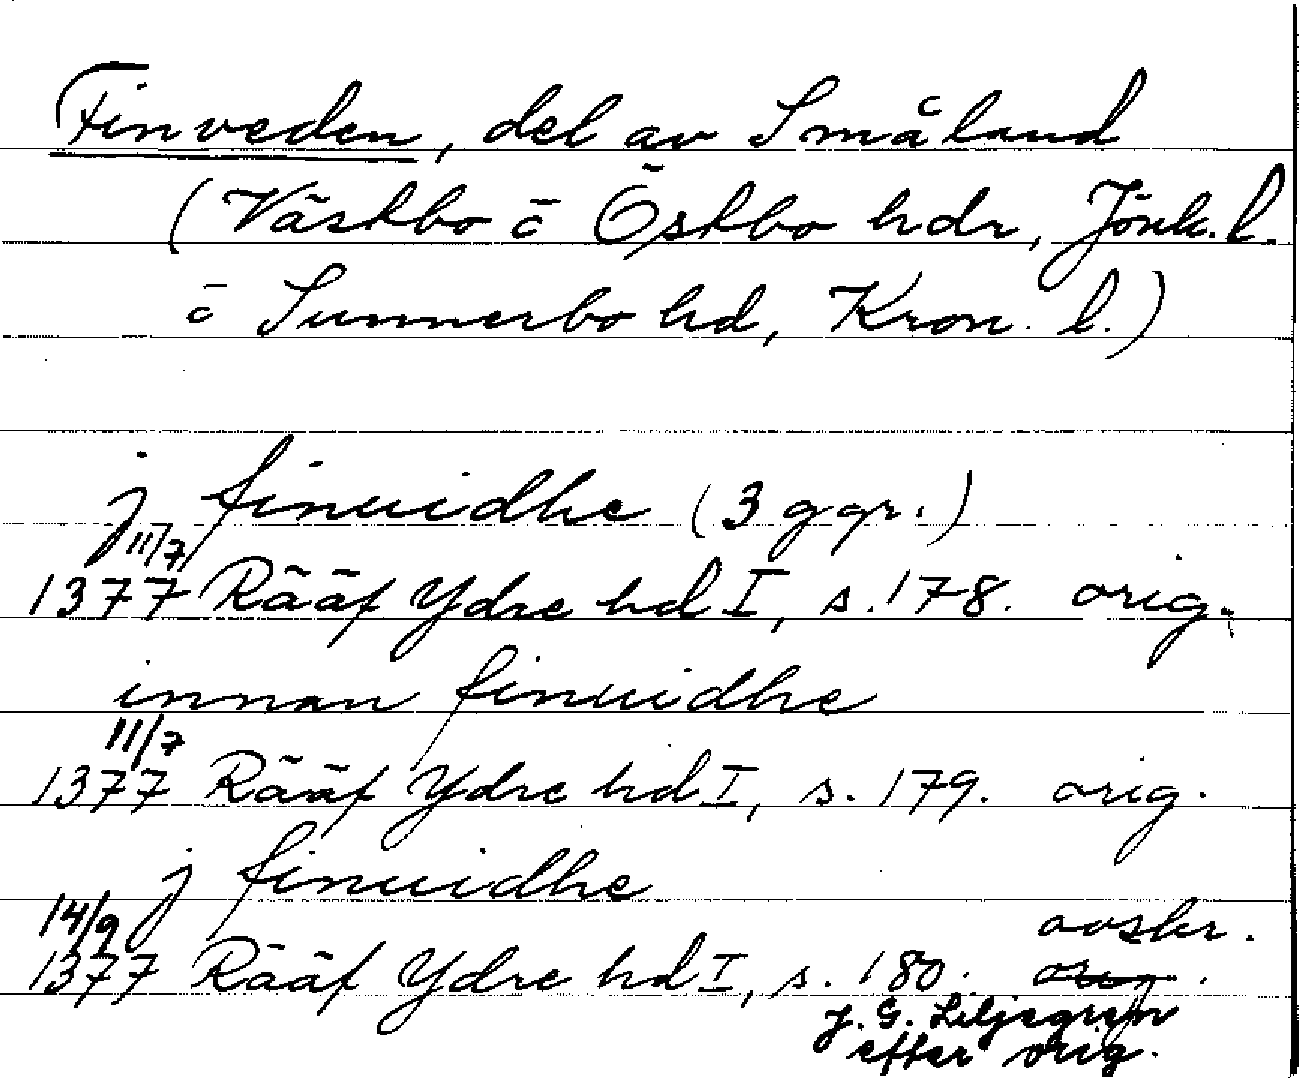 Finveden, del av Småland
(Västbo o Östbo hdr, Jönk. l.
o Sunnerbo hd, Kron. l.)
j finuidhe (3 ggr.)
11/7
1377 Rääf Ydre hd I, s. 178. orig.
innan finuidhe
11/7
1377 Rääf Ydre hd I, s. 179. orig.
j finuidhe
14/9 avskr.
1377 Rääf Ydre hd I, s. 180. orig.
J. G. Liljegren
efter orig.